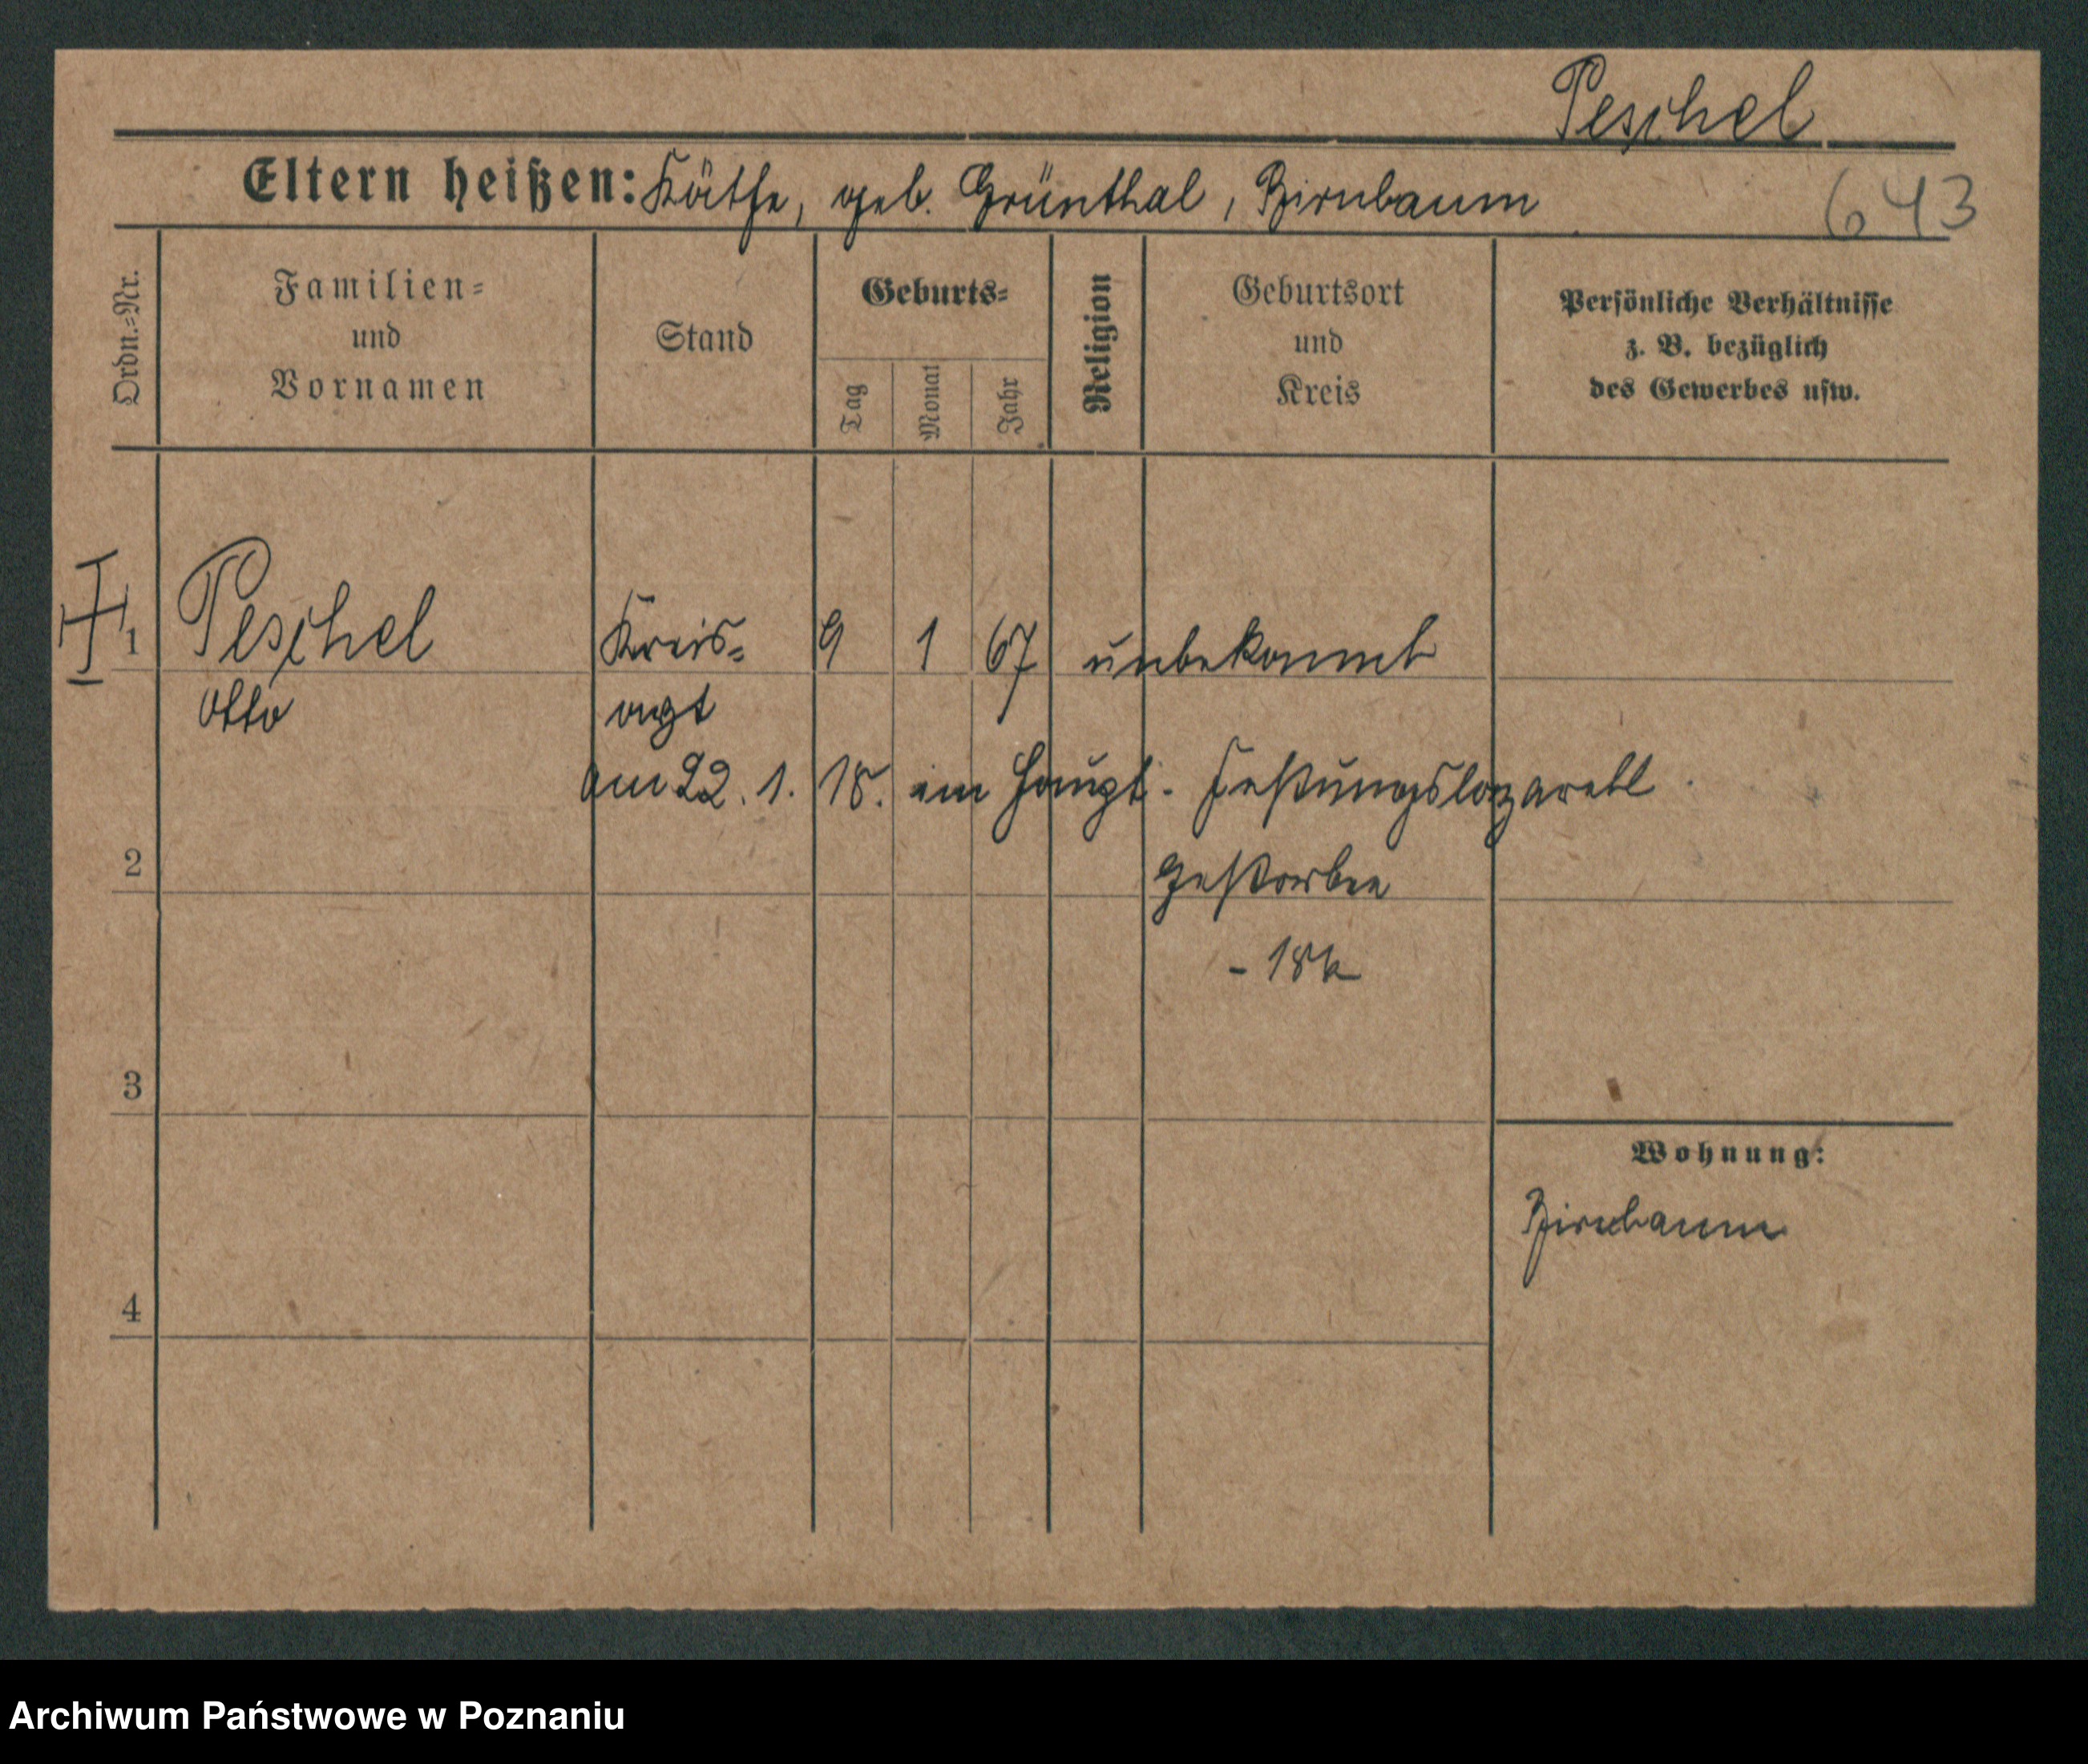 Peschel
Eltern heißen: Käthe, geb. Grünthal, Birnbaum
643
Ordn.=Nr.
Familien=
und
Vornamen
Stand
Geburts=
Tag
Monat
Jahr
Religion
Geburtsort
und
Kreis
Persönliche Verhältnisse
z. B. bezüglich
des Gewerbes usw.
1 Peschel Kreis= 9 1 67 unbekannt
Otto arzt
am 22. 1. 18. im Haupt- Festungslazarett
2 gestorben
3
Wohnung:
Birnbaum
4
Archiwum Państwowe w Poznaniu